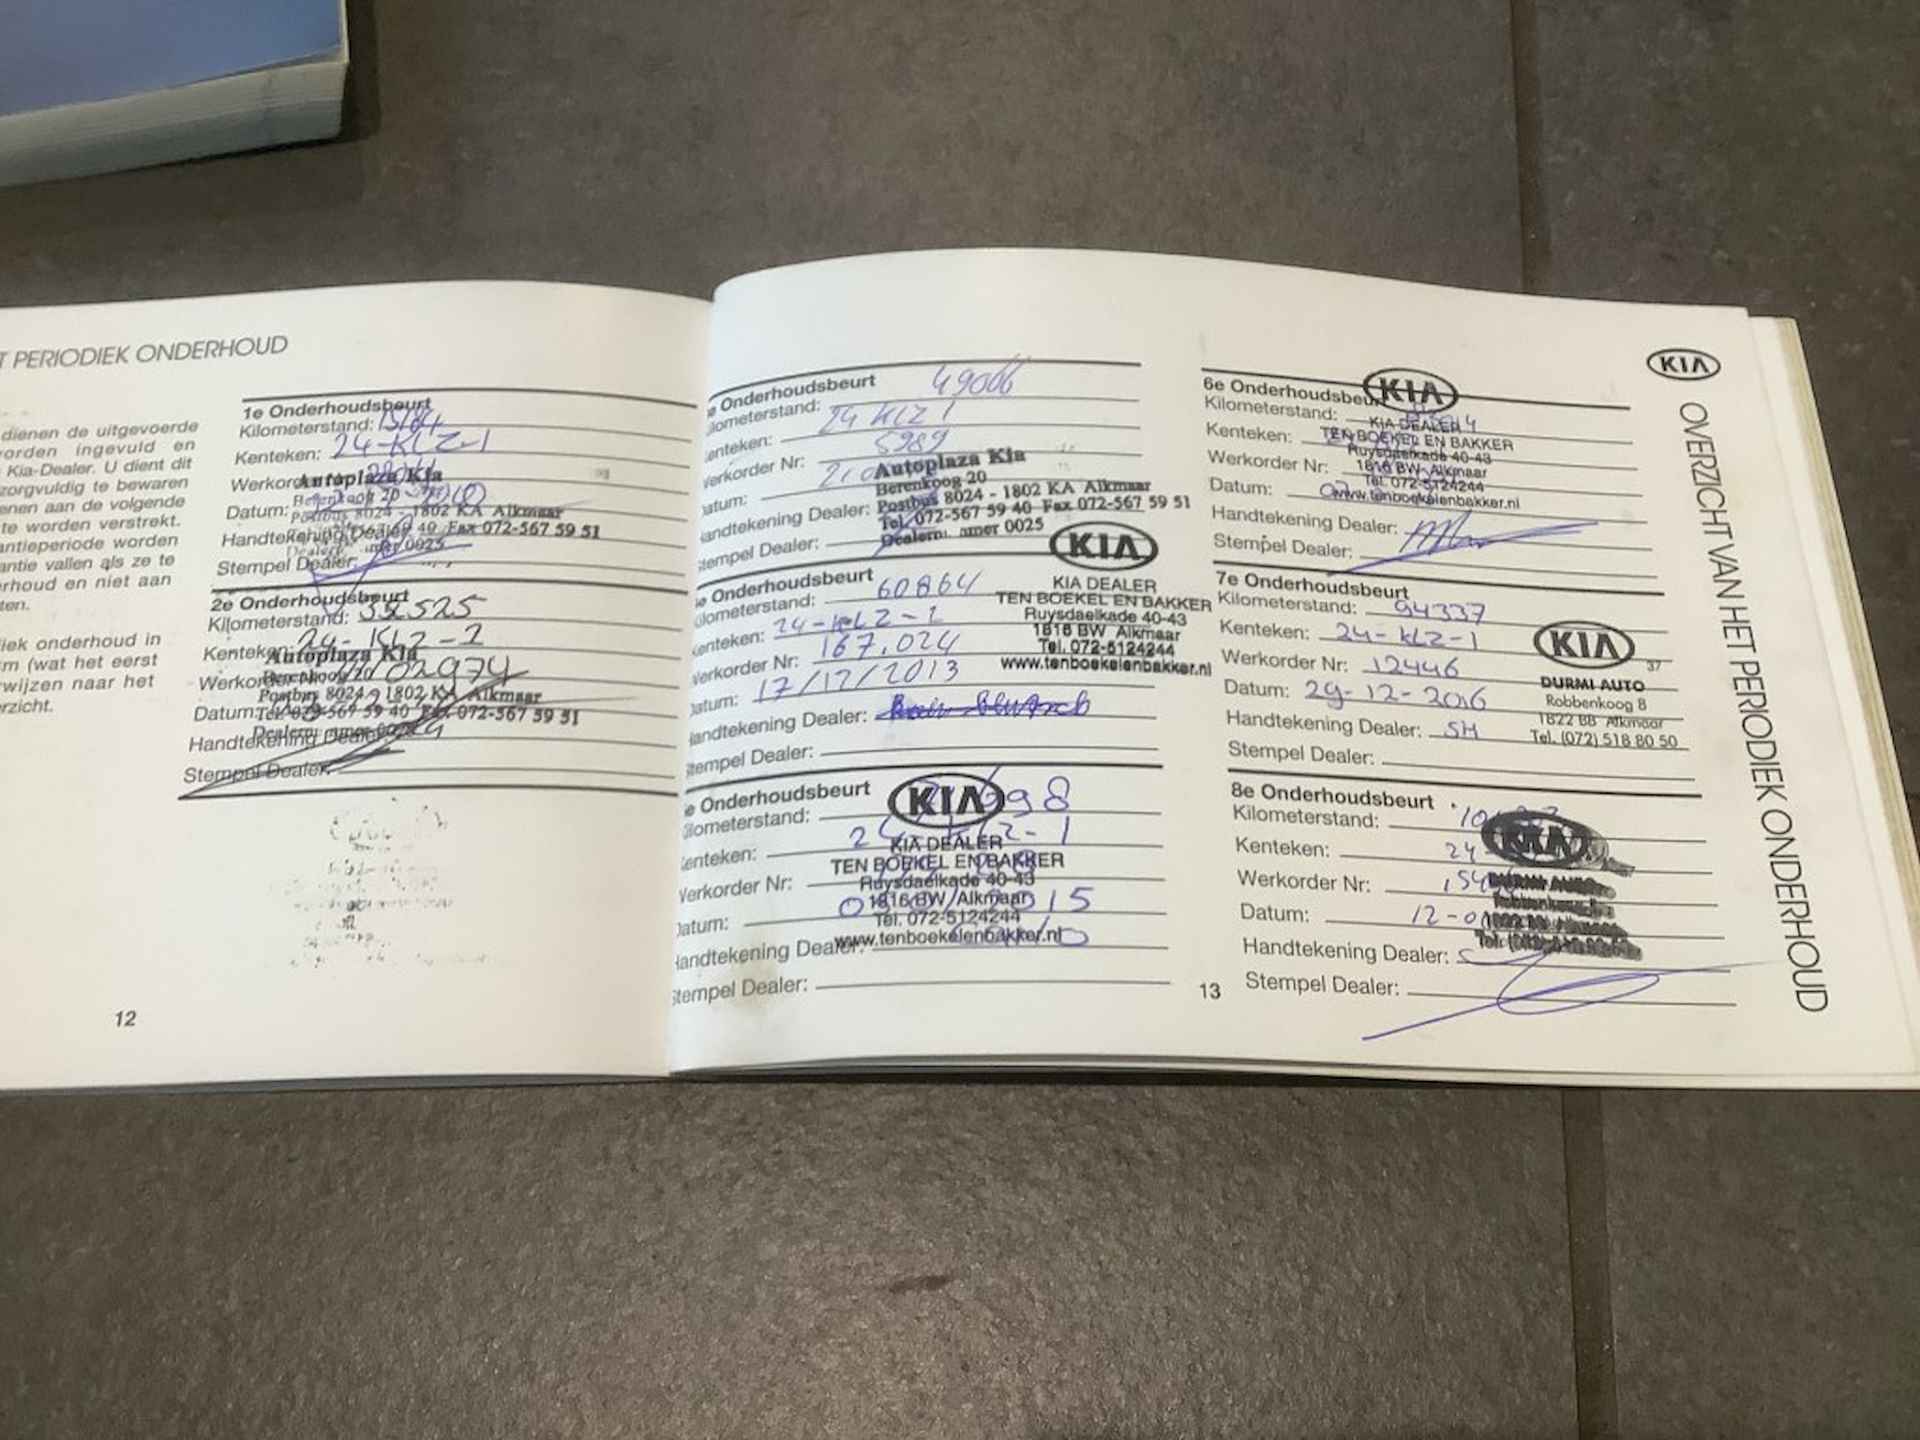 T PERIODIEK ONDERHOUD
dienen de uitgevoerde
orden ingevuld en
Kia-Dealer. U dient dit
zorgvuldig te bewaren
enen aan de volgende
te worden verstrekt.
antieperiode worden
antie vallen als ze te
rhoud en niet aan
ten.
iek onderhoud in
m (wat het eerst
rwijzen naar het
rzicht.
12
1e Onderhoudsbeurt
Kilometerstand:
Kenteken: 24-KLZ-1
Autoplaza Kia
Berenkoog 20
Datum:
Postbus 8024 - 1802 KA Alkmaar
Tel. 072-567 59 40 Fax 072-567 59 51
Handtekening Dealer:
Stempel Dealer:
2e Onderhoudsbeurt
Kilometerstand: 35525
24-KLZ-1
Autoplaza Kia
02974
Berenkoog 20
Postbus 8024 - 1802 KA Alkmaar
Datum:
Tel. 072-567 59 40 Fax 072-567 59 51
Handtekening Dealer:
Stempel Dealer:
e Onderhoudsbeurt 49066
ilometerstand:
24 KLZ 1
enteken: 5989
Verkorder Nr:
Autoplaza Kia
Berenkoog 20
atum:
Postbus 8024 - 1802 KA Alkmaar
Handtekening Dealer:
Tel. 072-567 59 40 Fax 072-567 59 51
Dealernummer 0025
Stempel Dealer:
e Onderhoudsbeurt
ilometerstand: 60864
enteken: 24-KLZ-1
Verkorder Nr: 167.024
atum: 17/12/2013
Handtekening Dealer:
Stempel Dealer:
KIA
KIA DEALER
TEN BOEKEL EN BAKKER
Ruysdaelkade 40-43
1816 BW Alkmaar
Tel. 072-5124244
www.tenboekelenbakker.nl
e Onderhoudsbeurt
ilometerstand: 698
enteken: 24-KLZ-1
Verkorder Nr:
atum: 2015
Handtekening Dealer:
Stempel Dealer:
KIA
KIA DEALER
TEN BOEKEL EN BAKKER
Ruysdaelkade 40-43
1816 BW Alkmaar
Tel. 072-5124244
www.tenboekelenbakker.nl
13
6e Onderhoudsbeurt
Kilometerstand:
Kenteken:
Werkorder Nr:
Datum:
Handtekening Dealer:
Stempel Dealer:
KIA
KIA DEALER
TEN BOEKEL EN BAKKER
Ruysdaelkade 40-43
1816 BW Alkmaar
Tel. 072-5124244
www.tenboekelenbakker.nl
7e Onderhoudsbeurt
Kilometerstand: 94337
Kenteken: 24-KLZ-1
Werkorder Nr: 12446
Datum: 29-12-2016
Handtekening Dealer: SH
Stempel Dealer:
KIA
37
DURMI AUTO
Robbenkoog 8
1822 BB Alkmaar
Tel. (072) 518 80 50
8e Onderhoudsbeurt
Kilometerstand:
Kenteken: 24
Werkorder Nr:
Datum: 12-0
Handtekening Dealer:
Stempel Dealer:
KIA
DURMI AUTO
KIA
OVERZICHT VAN HET PERIODIEK ONDERHOUD